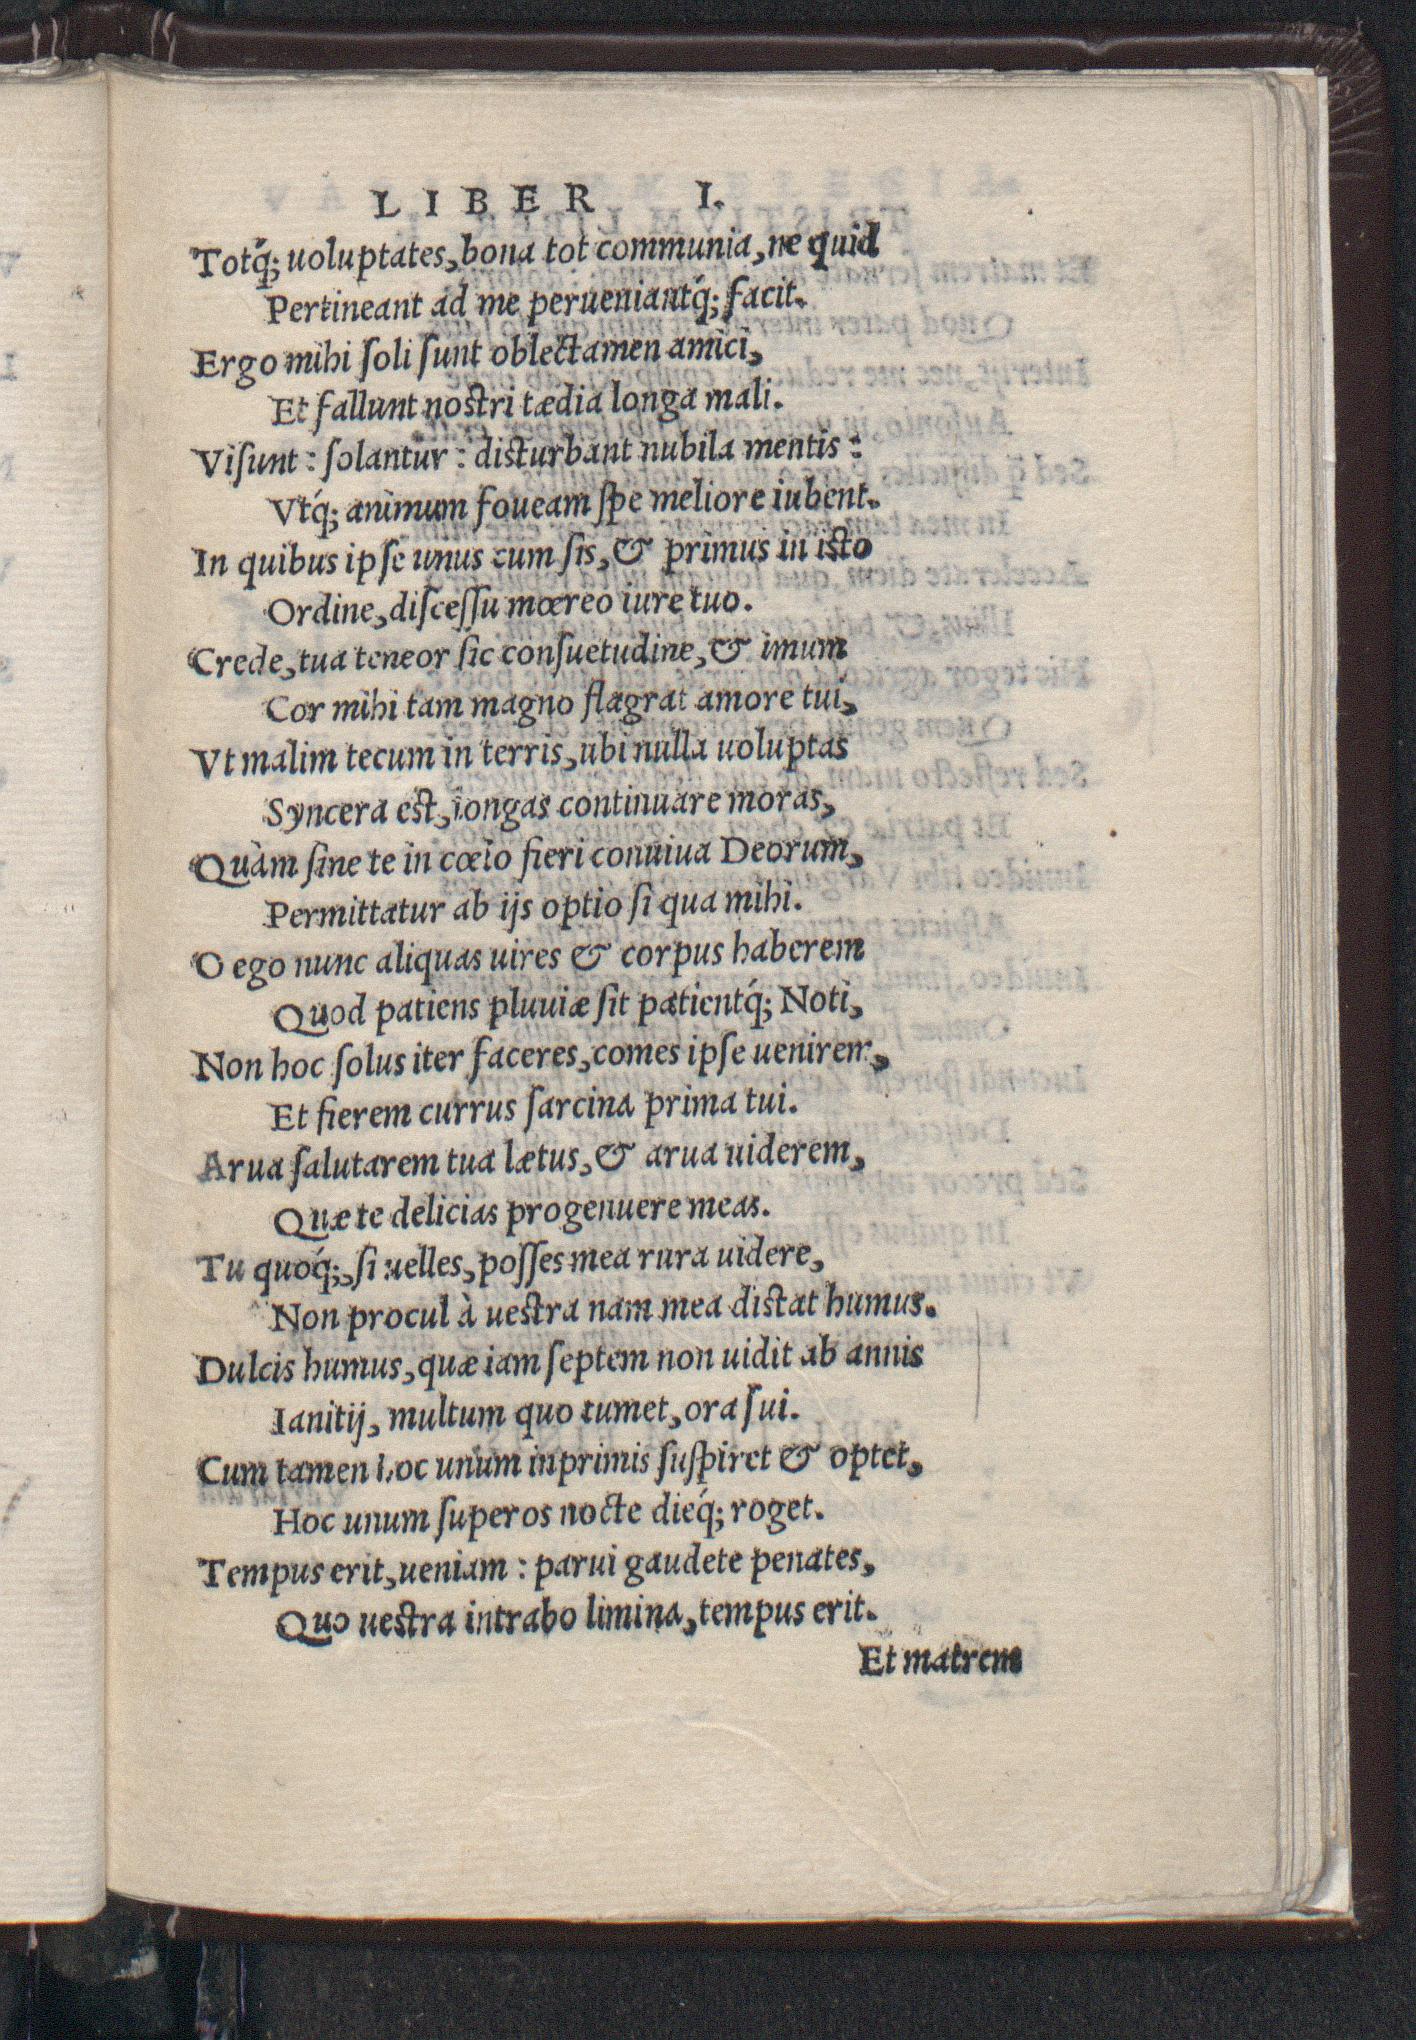 LIBER I.
Totq́; uoluptates, bona tot communia, ne quid
Pertineant ad me perueniantq́; facit.
Ergo mihi ſoli ſunt oblectamen amici,
Et fallunt noſtri tædia longa mali.
Viſunt: ſolantur: diſturbant nubila mentis:
Vtq́; animum foueam ſpe meliore iubent.
In quibus ipſe unus cum ſis, & primus in iſto
Ordine, diſceſſu mœreo iure tuo.
Crede, tua teneor ſic conſuetudine, & imum
Cor mihi tam magno flagrat amore tui,
Vt malim tecum in terris, ubi nulla uoluptas
Syncera eſt, longas continuare moras,
Quàm ſine te in cœlo fieri conuiua Deorum,
Permittatur ab ijs optio ſi qua mihi.
O ego nunc aliquas uires & corpus haberem
Quod patiens pluuiæ ſit patientq́; Noti,
Non hoc ſolus iter faceres, comes ipſe uenirem,
Et fierem currus ſarcina prima tui.
Arua ſalutarem tua lætus, & arua uiderem,
Quæ te delicias progenuere meas.
Tu quoq́;, ſi uelles, poſſes mea rura uidere,
Non procul à ueſtra nam mea diſtat humus.
Dulcis humus, quæ iam ſeptem non uidit ab annis
Ianitij, multum quo tumet, ora ſui.
Cum tamen hoc unum inprimis ſuſpiret & optet,
Hoc unum ſuperos nocte dieq́; roget.
Tempus erit, ueniam: parui gaudete penates,
Quo ueſtra intrabo limina, tempus erit.
Et matrem